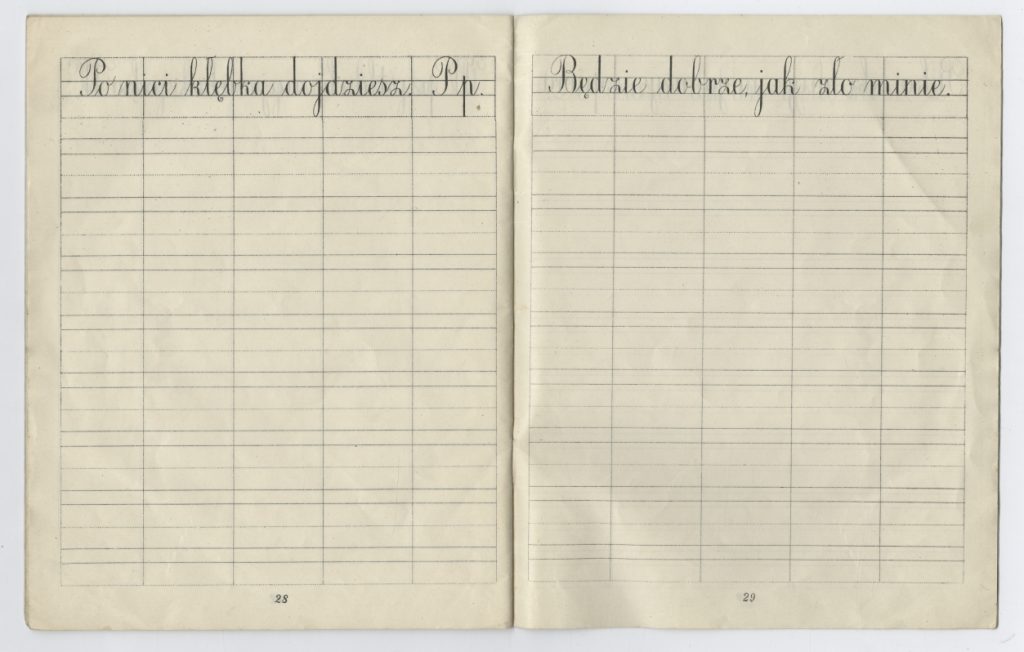 Po nici kłębka dojdziesz. P p.
28
Będzie dobrze, jak zło minie.
29